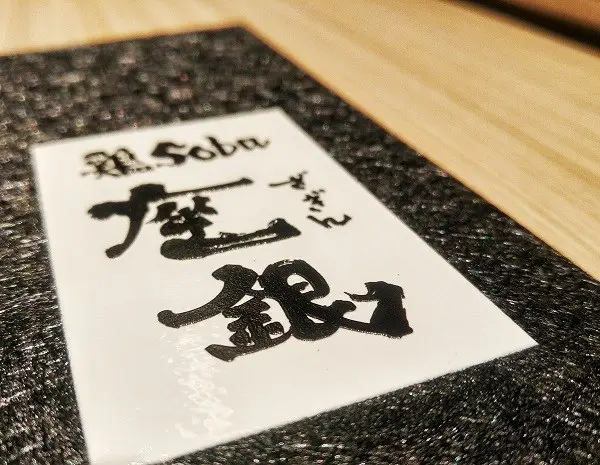 鶏Soba
座銀
ざぎん